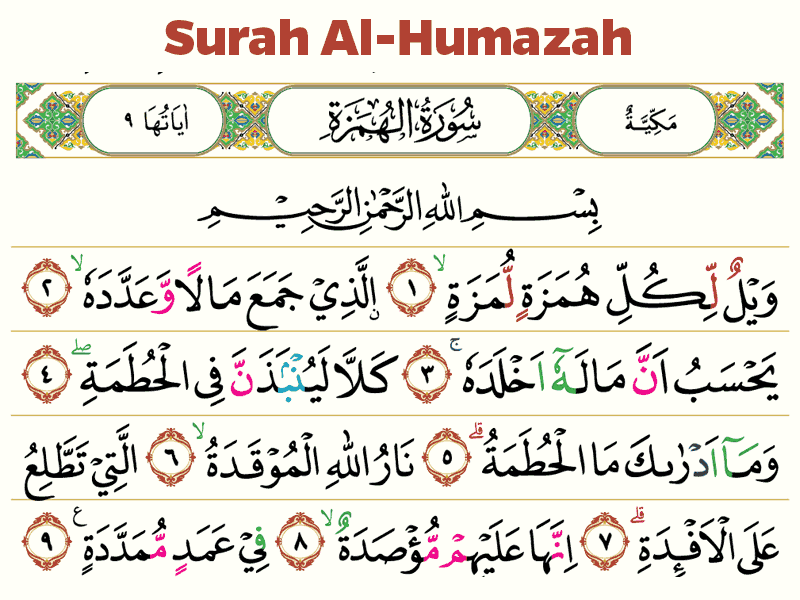 Surah Al-Humazah
مَكِّيَّةٌ سُورَةُ الْهُمَزَةِ اٰيَاتُهَا ٩
بِسْمِ اللهِ الرَّحْمٰنِ الرَّحِيْمِ
وَيْلٌ لِّكُلِّ هُمَزَةٍ لُّمَزَةٍ ۙ ١ ۨالَّذِيْ جَمَعَ مَالًا وَّعَدَّدَهٗ ۙ ٢
يَحْسَبُ اَنَّ مَالَهٗٓ اَخْلَدَهٗ ۚ ٣ كَلَّا لَيُنْۢبَذَنَّ فِى الْحُطَمَةِ ۖ ٤
وَمَآ اَدْرٰىكَ مَا الْحُطَمَةُ ۗ ٥ نَارُ اللهِ الْمُوْقَدَةُ ۙ ٦ الَّتِيْ تَطَّلِعُ
عَلَى الْاَفْـِٕدَةِ ۗ ٧ اِنَّهَا عَلَيْهِمْ مُّؤْصَدَةٌ ۙ ٨ فِيْ عَمَدٍ مُّمَدَّدَةٍ ع ٩